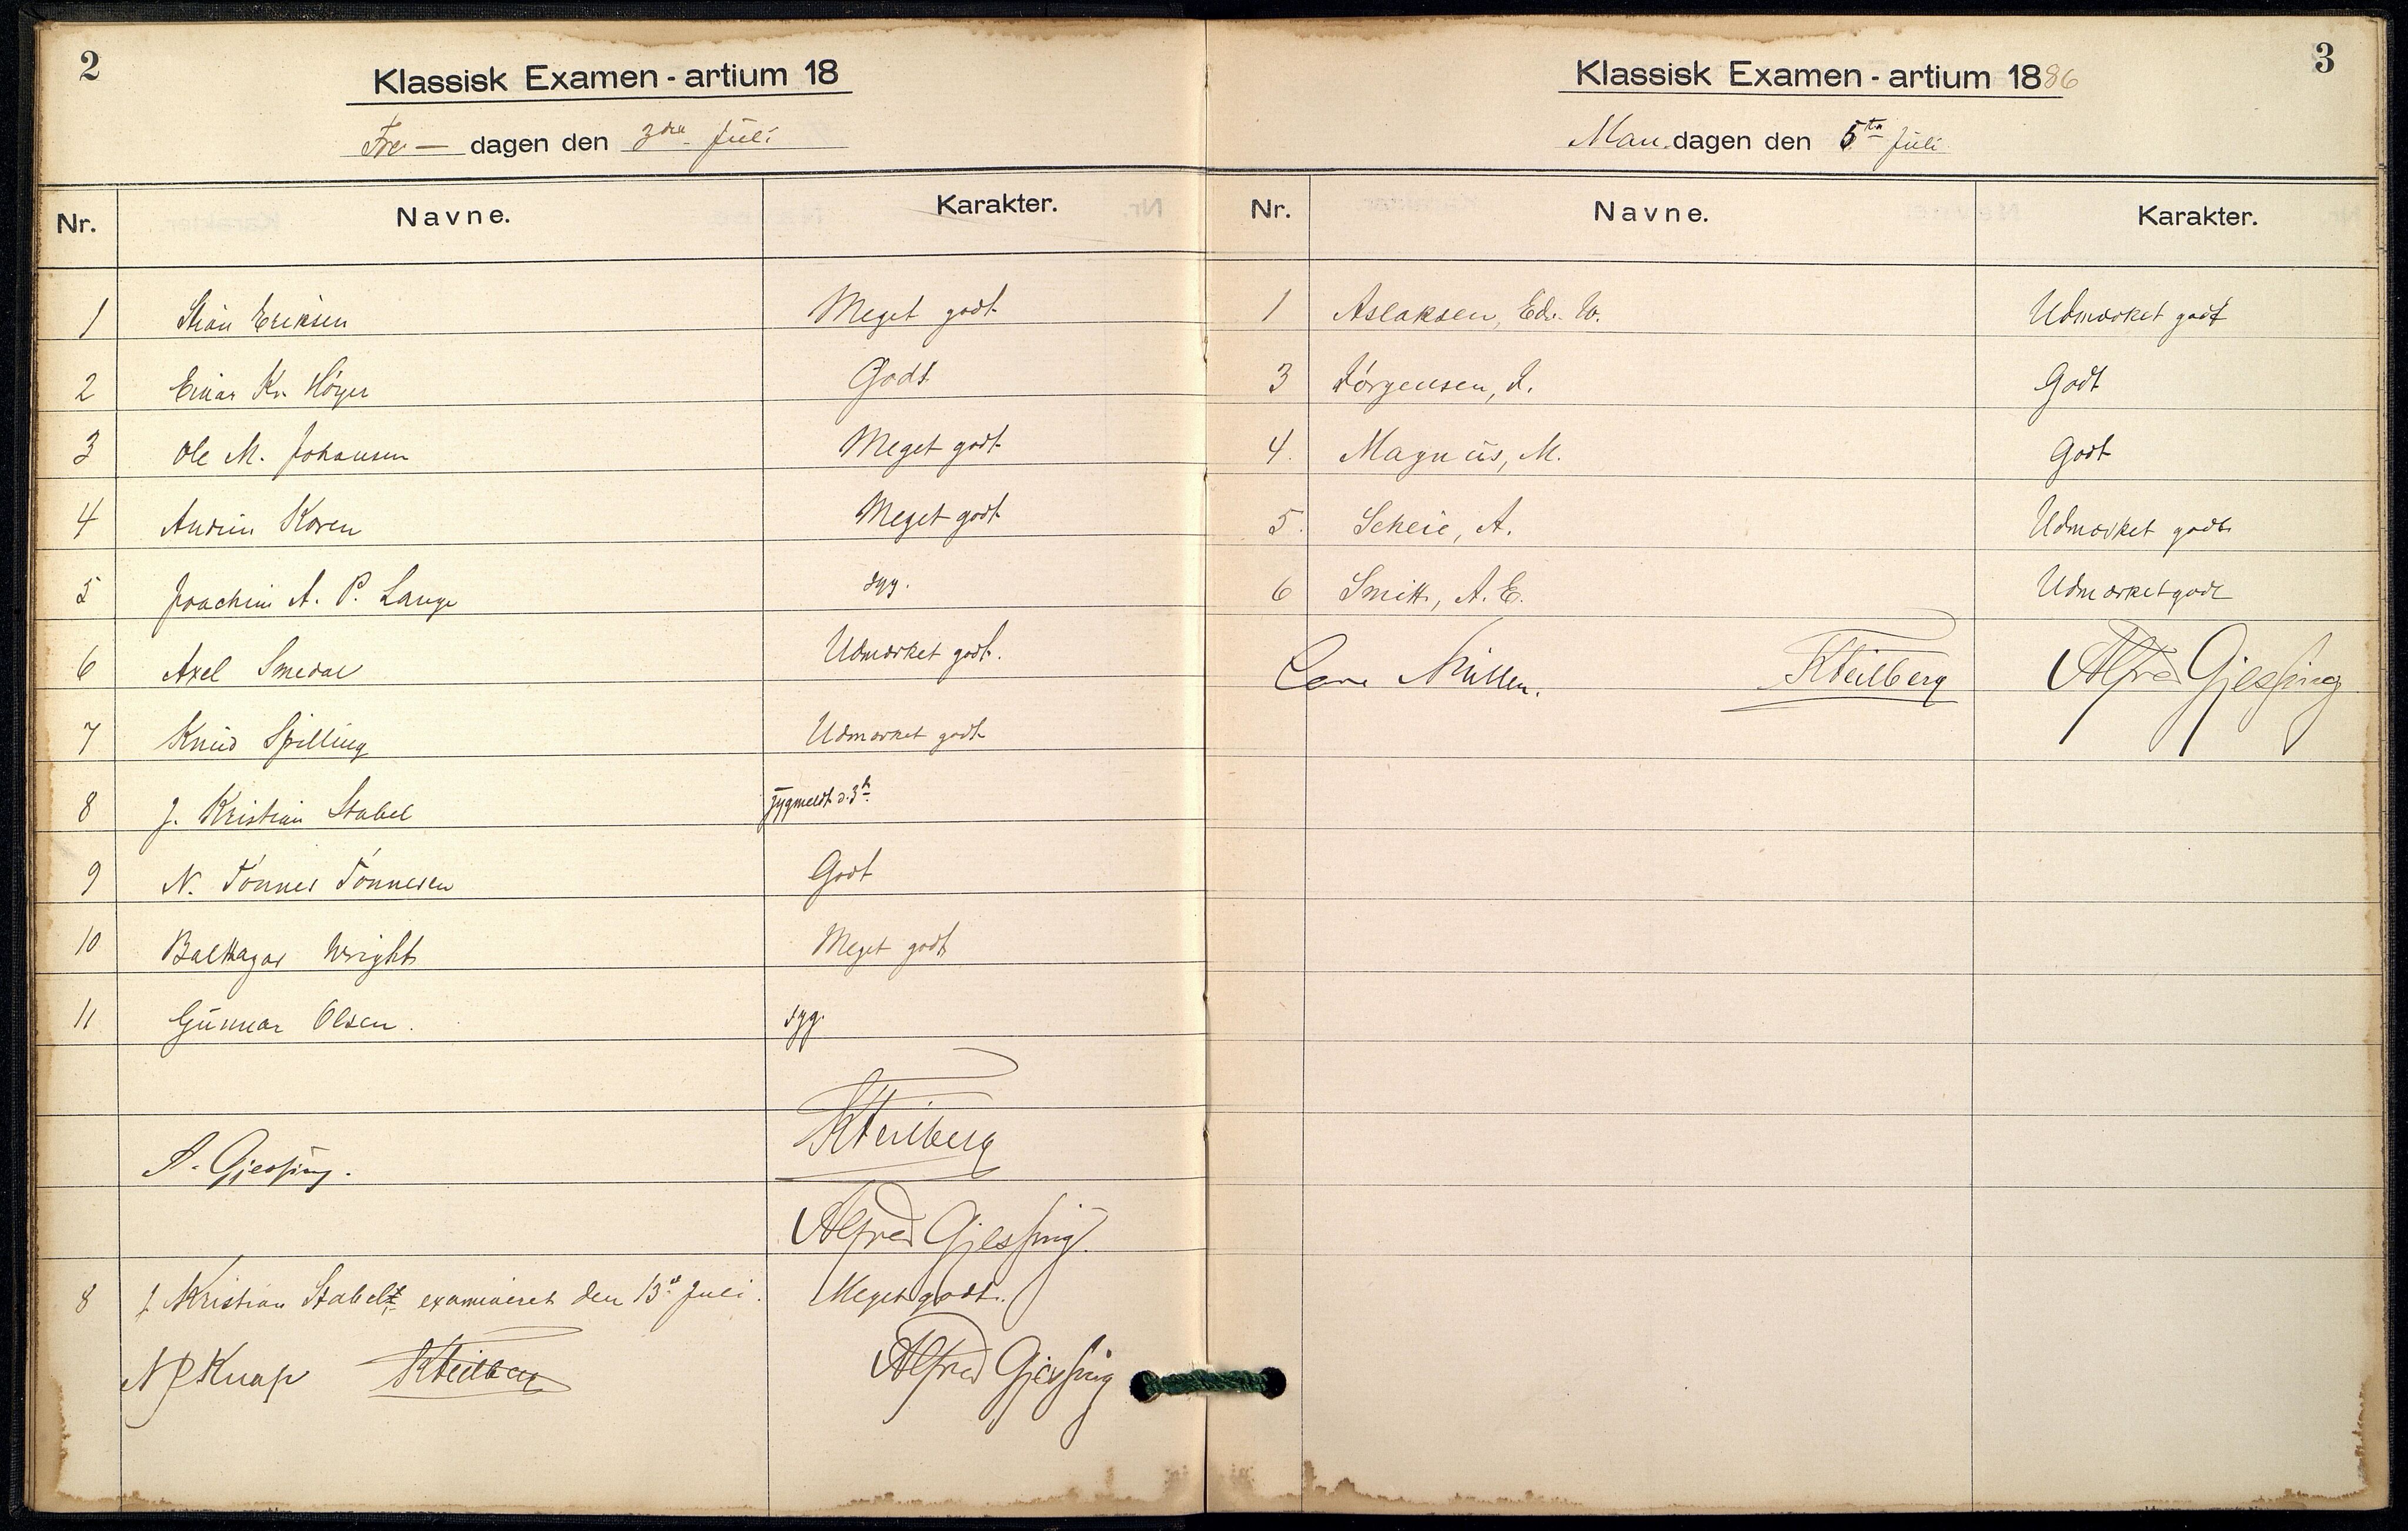 2
Klassisk Examen - artium 18
Fre- dagen den 3die Juli
Nr. Navne. Karakter.
1 Stian Eriksen Meget godt
2 Einar Kr. Höyer Godt
3 Ole M. Johansen Meget godt
4 Andrin Koren Meget godt
5 Joachim A. P. Lange syg.
6 Axel Smedal Udmærket godt.
7 Knud Spilling Udmærket godt
8 J. Kristian Stabel sygmeldt d. 3die
9 N. Tönnes Tönnesen Godt
10 Balthazar Wright Meget godt
11 Gunnar Olsen. syg.
KHeilberg
A. Gjessing.
Alfred Gjessing.
8 J. Kristian Stabel examineret den 13de Juli. Meget godt.
N P Knap KHeilberg Alfred Gjessing
3
Klassisk Examen - artium 1886
Man. dagen den 5te Juli
Nr. Navne. Karakter.
1 Aslaksen, Edv. W. Udmærket godt
3 Jörgensen, J. Godt
4. Magnus, M. Godt
5. Scheie, A. Udmærket godt
6 Smith, A. E. Udmærket godt
Carl Müller. KHeilberg Alfred Gjessing